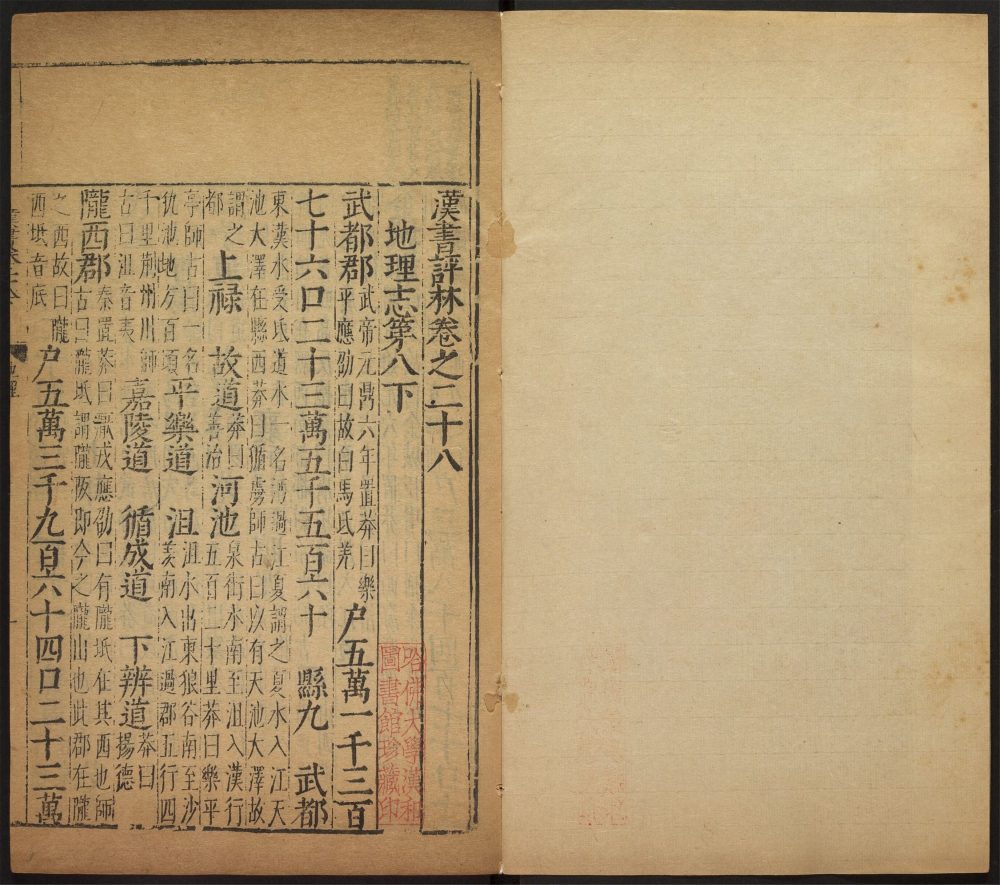 漢書評林卷之二十八
地理志第八下
武都郡武帝元鼎六年置莽曰樂平應劭曰故白馬氐羌 户五萬一千三百
七十六口二十三萬五千五百六十 縣九 武都
東漢水受氐道水一名沔過江夏謂之夏水入江天池大澤在縣西莽曰循虜師古曰以有天池大澤故
謂之都 上祿 故道莽曰善治 河池泉街水南至沮入漢行五百二十里莽曰樂平
亭師古曰一名仇池地方百頃 平樂道 沮沮水出東狼谷南至沙羡南入江過郡五行四
千里荆州川師古曰沮音夷 嘉陵道 循成道 下辨道莽曰揚德
隴西郡秦置莽曰厭戎應劭曰有隴坻在其西也師古曰隴坻謂隴阪即今之隴山也此郡在隴
之西故曰隴西坻音底 户五萬三千九百六十四口二十三萬
哈佛大學漢和
圖書館珍藏印